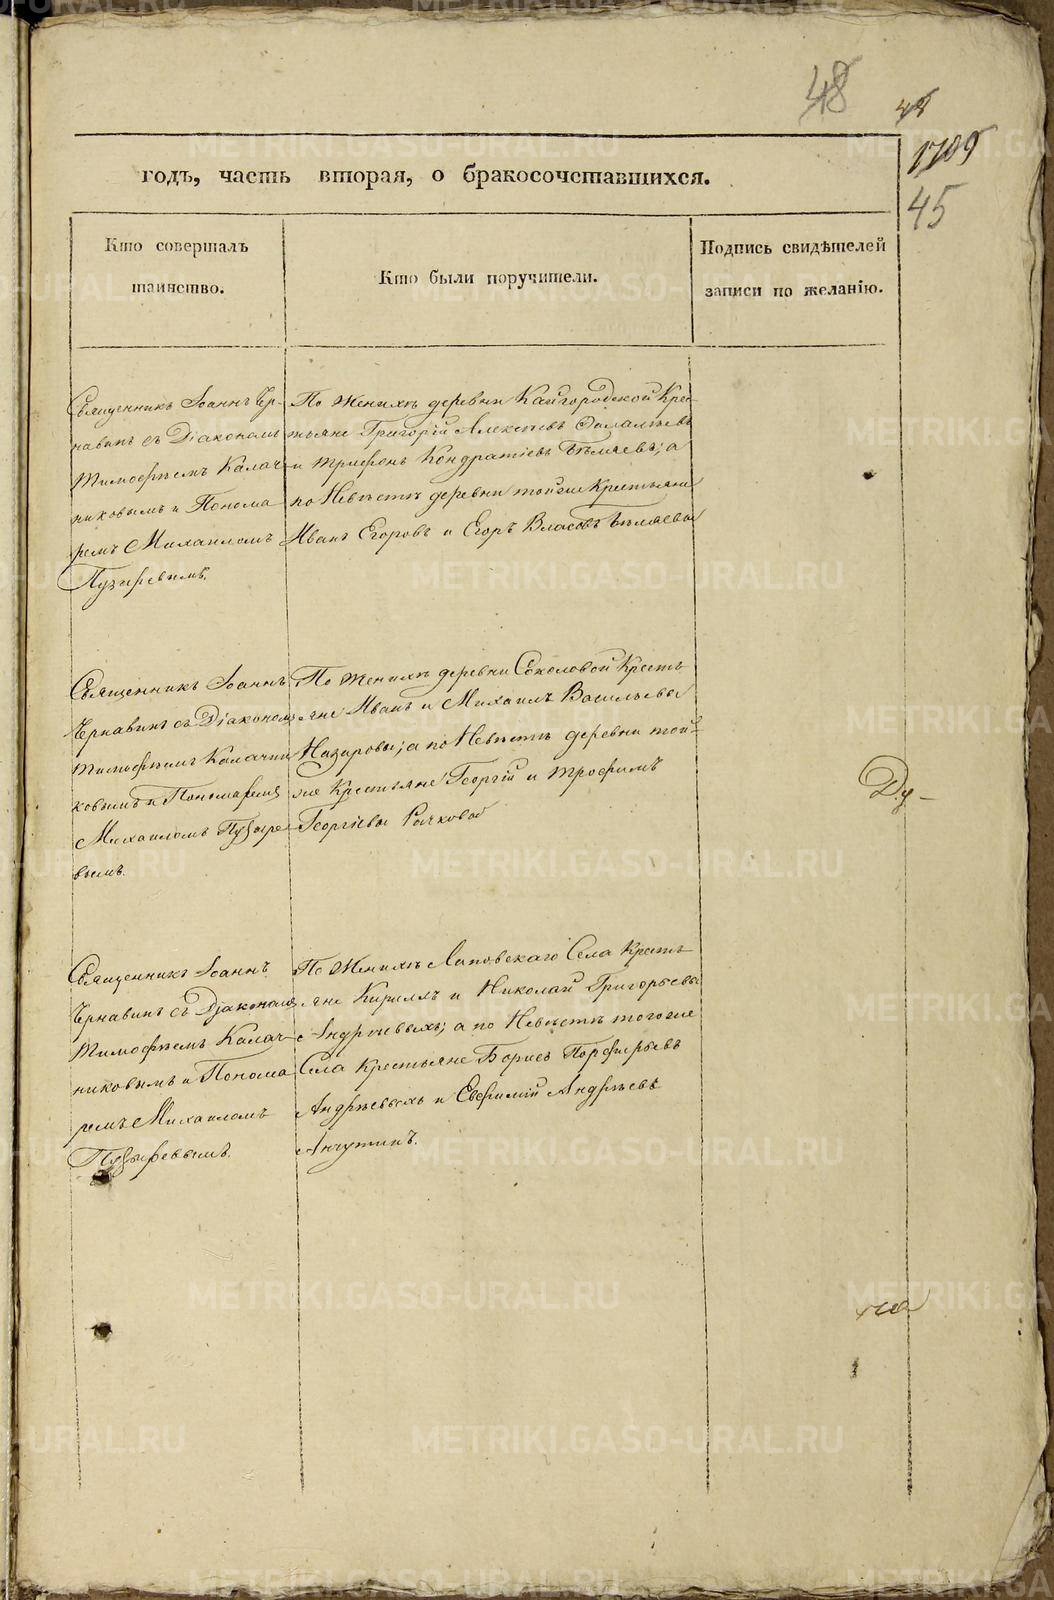 48
48
1709
45
годъ, часть вторая, о бракосочетавшихся.
Кто совершалъ
таинство.
Кто были поручители.
Подпись свидѣтелей
записи по желанію.
Священникъ Іоаннъ Чер-
навинъ съ Діакономъ
Тимофѣемъ Калач-
никовымъ и Понома
ремъ Михаиломъ
Пузыревымъ.
По женихѣ деревни Кайгородской Кре-
тьяне Григорій Алексѣевъ
и Трифонъ Кондратіевъ Бѣляевъ; а
по Невѣстѣ деревни тойже Крестьяне
Иванъ Егоровъ и Егоръ Власовъ Бѣляевы
Священникъ Іоаннъ
Чернавинъ съ Діакономъ
Тимофѣемъ Калачни
ковымъ и Пономаремъ
Михаиломъ Пузыре
вымъ.
По женихѣ деревни Соколовой Кресть
яне Иванъ и Михаилъ Васильевы
Назаровы; а по Невѣстѣ деревни той-
же Крестьяне Георгій и Трофимъ
Георгіевы Рачковы
Священникъ Іоаннъ
Чернавинъ съ Діакономъ
Тимофѣемъ Калач-
никовымъ и Понома
ремъ Михаиломъ
Пузыревымъ.
По Женихѣ Липовскаго Села Кресть
яне Кириллъ и Николай Григорьевы
Андреевыхъ; а по Невѣстѣ тогоже
Села Крестьяне Борисъ Порфирьевъ
Андрѣевыхъ и Евфимій Андрѣевъ
Анчутинъ.
METRIKI.GASO-URAL.RU